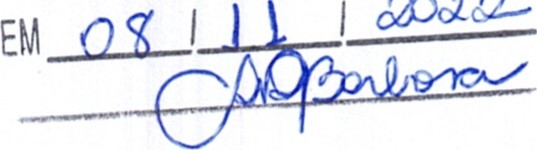 EM 08 / 11 / 2022
Barbosa